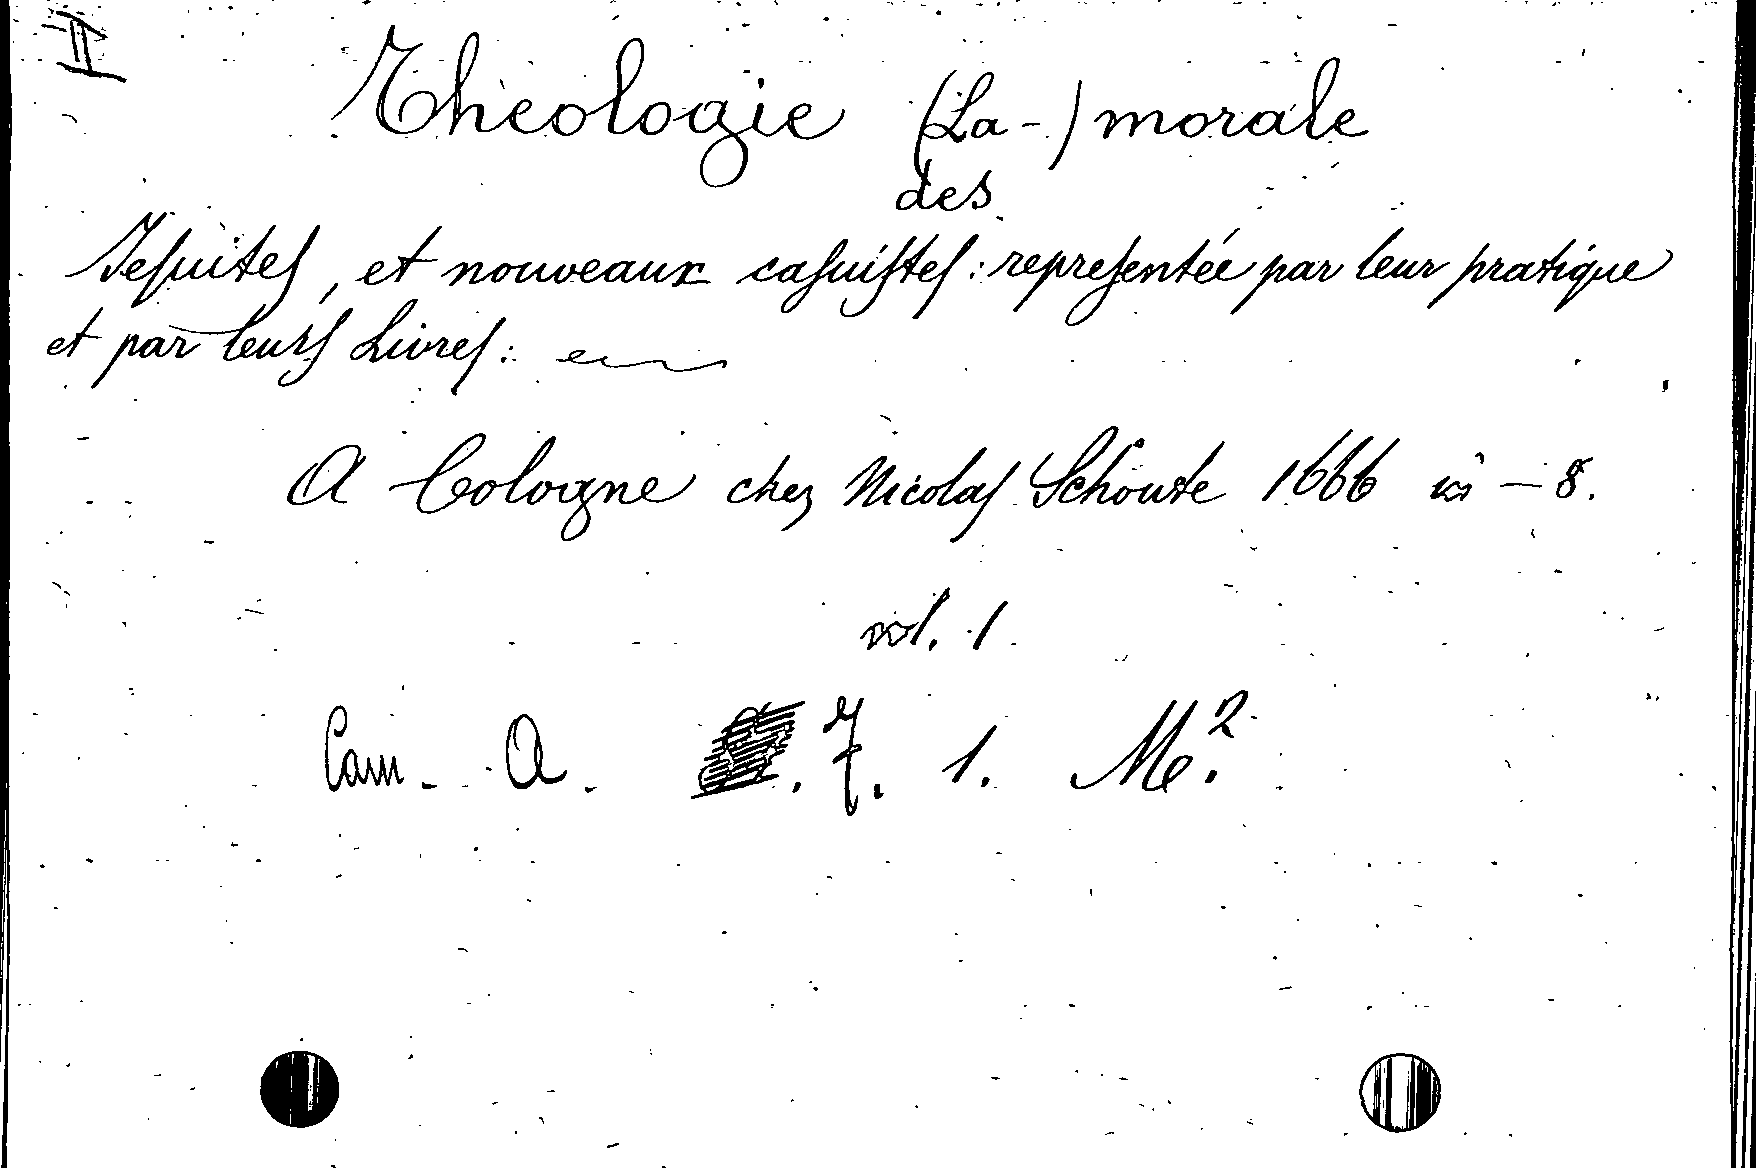 II
Theologie (La-) morale
des
Jeſuiteſ, et nouveaux caſuiſteſ: repreſentée par leur pratique
et par leurſ Livreſ:
A Cologne chez Nicolaſ Schoute 1666 in — 8.
vol. 1
Cam. A. 7. 1. M.²